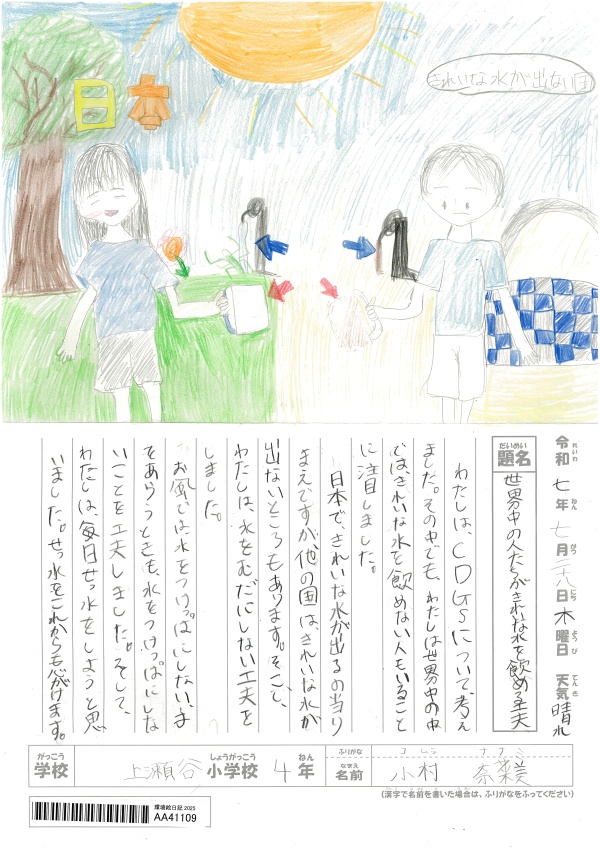 日本
きれいな水が出ない国
令和七年七月二十八日木曜日 天気 晴れ
れいわ ねん がつ にち ようび てんき
だいめい
題名 世界中の人たちがきれいな水を飲める工夫
わたしは、CDGSについて考え
ました。その中でも、わたしは世界中の中
では、きれいな水を飲めない人もいること
に注目しました。
日本で、きれいな水が出るの当り
まえですが他の国は、きれいな水が
出ないところもあります。そこで、
わたしは、水をむだにしない工夫を
しました。
お風では水をつけっぱにしない、手
をあらうときも、水をつけっぱにしな
いことを工夫しました。そして、
わたしは、毎日せっ水をしようと思
いました。せっ水をこれからも心がけます。
がっこう しょうがっこう ねん ふりがな コムラ ナナミ
学校 上瀬谷 小学校 4年 なまえ 名前 小村 奈菜美
(漢字で名前を書いた場合は、ふりがなをふってください)
環境絵日記 2025
AA41109